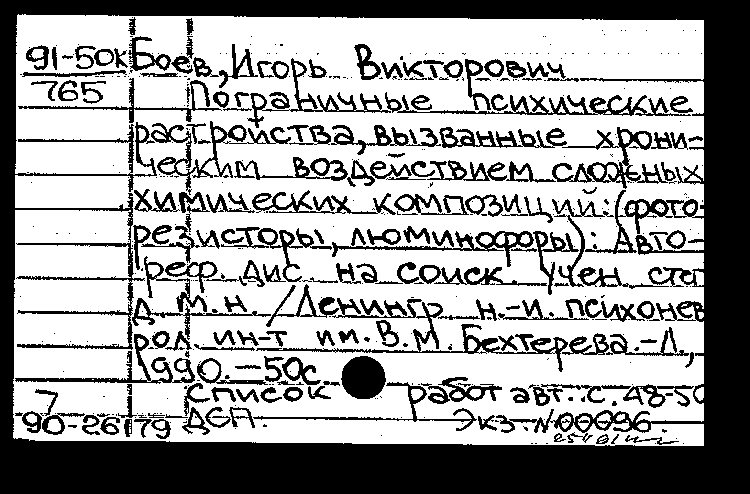 91-50к Боев, Игорь Викторович
765 Пограничные психические
расстройства, вызванные хрони-
ческим воздействием сложных
химических композиций: (фото-
резисторы, люминофоры): Авто-
реф. дис. на соиск. учен. степ
д.м.н. /Ленингр. н.-и. психонев
рол. ин-т им. В.М. Бехтерева.-Л.,
1990.-50с
Список работ авт.: с. 48-50
7 ДСП. Экз. №00096.
90-26179